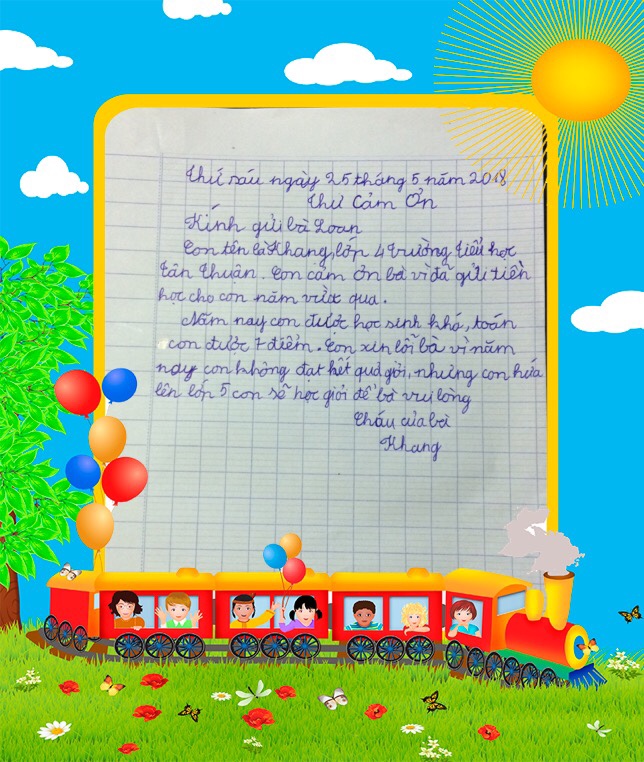 Thứ sáu ngày 25 tháng 5 năm 2018
Thư Cảm Ơn
Kính gửi bà Loan
Con tên là Khang, lớp 4 trường tiểu học
Tân Thuận. Con cảm ơn bà vì đã gửi tiền
học cho con năm vừa qua.
Năm nay con được học sinh khá, toán
con được 7 điểm. Con xin lỗi bà vì năm
nay con không đạt kết quả giỏi, nhưng con hứa
lên lớp 5 con sẽ học giỏi để bà vui lòng
Cháu của bà
Khang